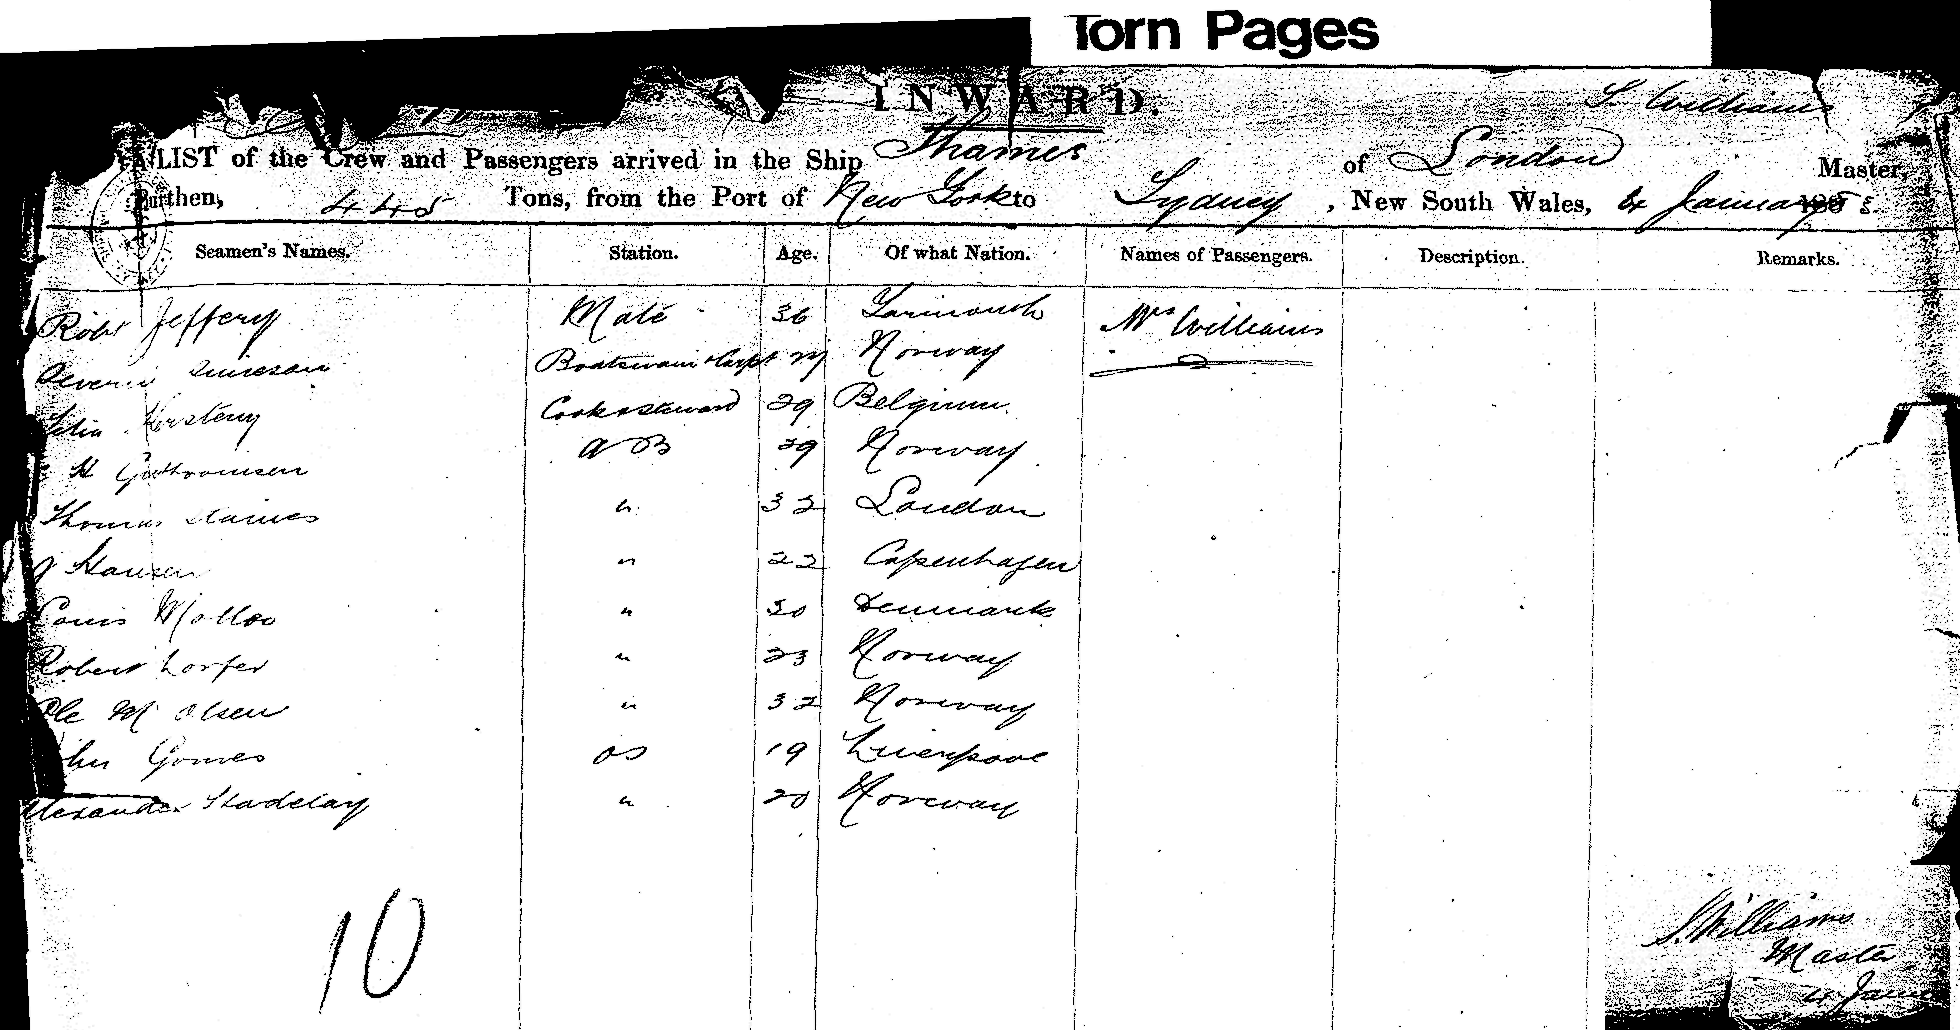 Torn Pages
INWARD.
S Williams
A LIST of the Crew and Passengers arrived in the Ship Thames of London Master,
Burthen, 445 Tons, from the Port of New York to Sydney, New South Wales, 4 January 188
Seamen's Names. Station. Age. Of what Nation. Names of Passengers. Description. Remarks.
Robt Jeffery Mate 36 Yarmouth Mrs Williams
Boatswain & Carpt Norway
Cook & Steward 29 Belgium
H A B 29 Norway
Thomas " 32 London
J Hansen " 22 Copenhagen
Louis " 30 Denmark
Robert " 23 Norway
Ole M Olsen " 32 Norway
John Gomes OS 19 Liverpool
Alexander " 20 Norway
10
S. Williams
Master
4 Janu